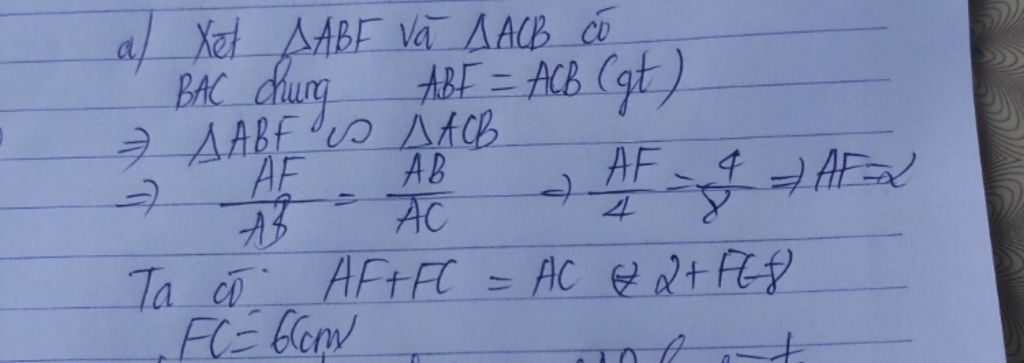 a) Xét ΔABF và ΔACB có
BAC chung ABF = ACB (gt)
⇒ ΔABF ∽ ΔACB
⇒ AF/AB = AB/AC ⇒ AF/4 = 4/8 ⇒ AF=2
Ta có AF+FC = AC ⇔ 2+FC=8
FC=6(cm)